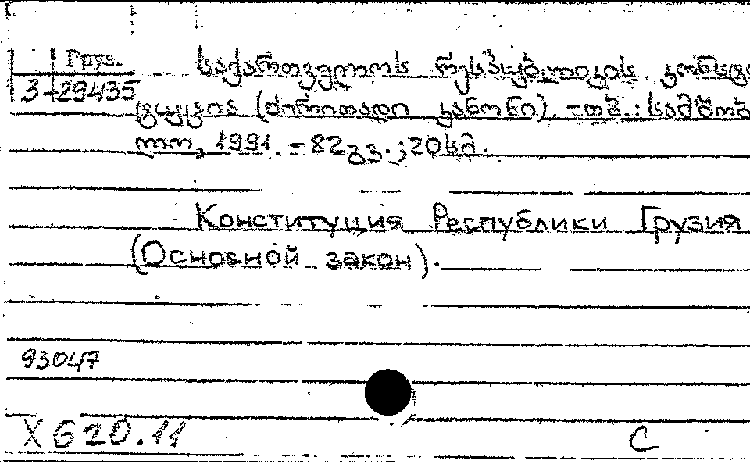 Груз.
3-29435
საქართველოს რესპუბლიკის კონსტი
ტუცია (ძირითადი კანონი). - თბ.: სამშობ
ლო, 1991. - 82გვ.; 20სმ.
Конституция Республики Грузия
(Основной закон).
93047
X 620.11
C